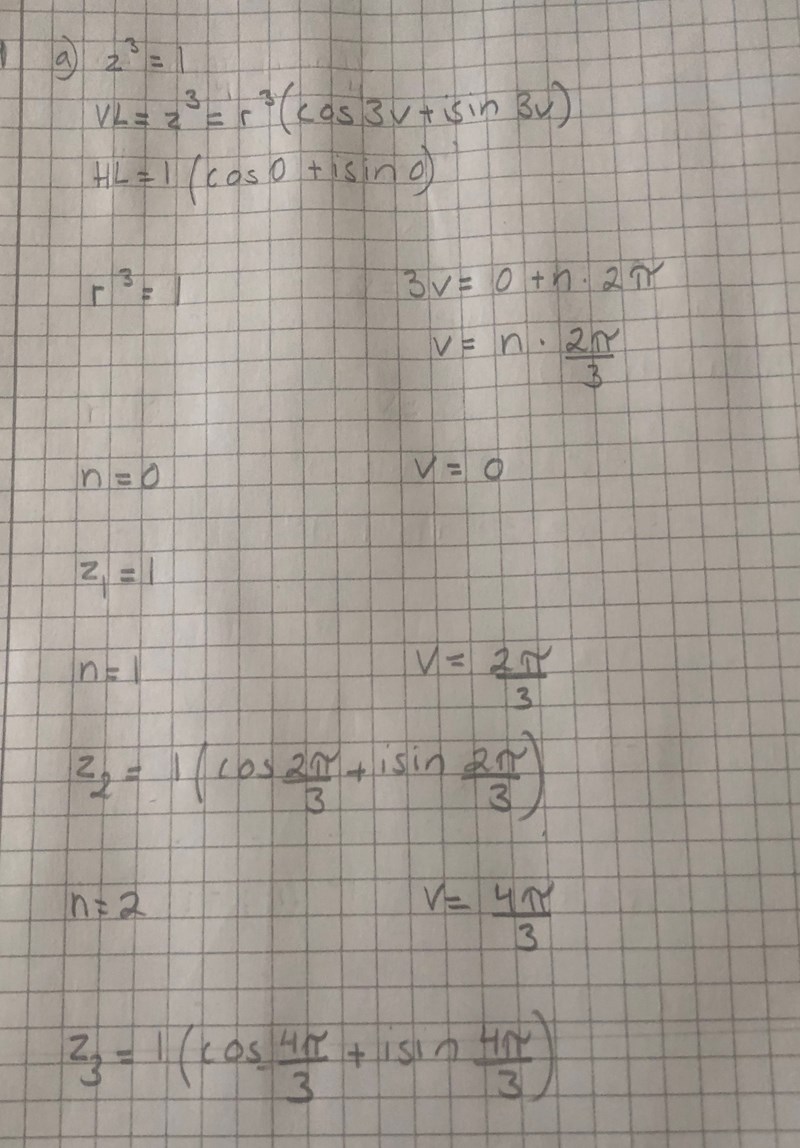 a) z³ = 1
VL = z³ = r³(cos 3v + isin 3v)
HL = 1 (cos 0 + isin 0)
r³ = 1 3v = 0 + n · 2π
v = n · 2π/3
n = 0 v = 0
z₁ = 1
n = 1 v = 2π/3
z₂ = 1 (cos 2π/3 + isin 2π/3)
n = 2 v = 4π/3
z₃ = 1 (cos 4π/3 + isin 4π/3)